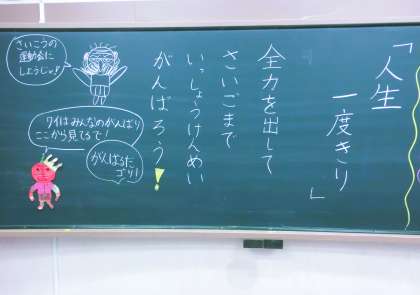 「人生
一度きり」
全力を出して
さいごまで
いっしょうけんめい
がんばろう!
さいこうの
運動会に
しようじゃ!!
ワイはみんなのがんばり
ここから見てるで!
がんばるだ
ゴリ!